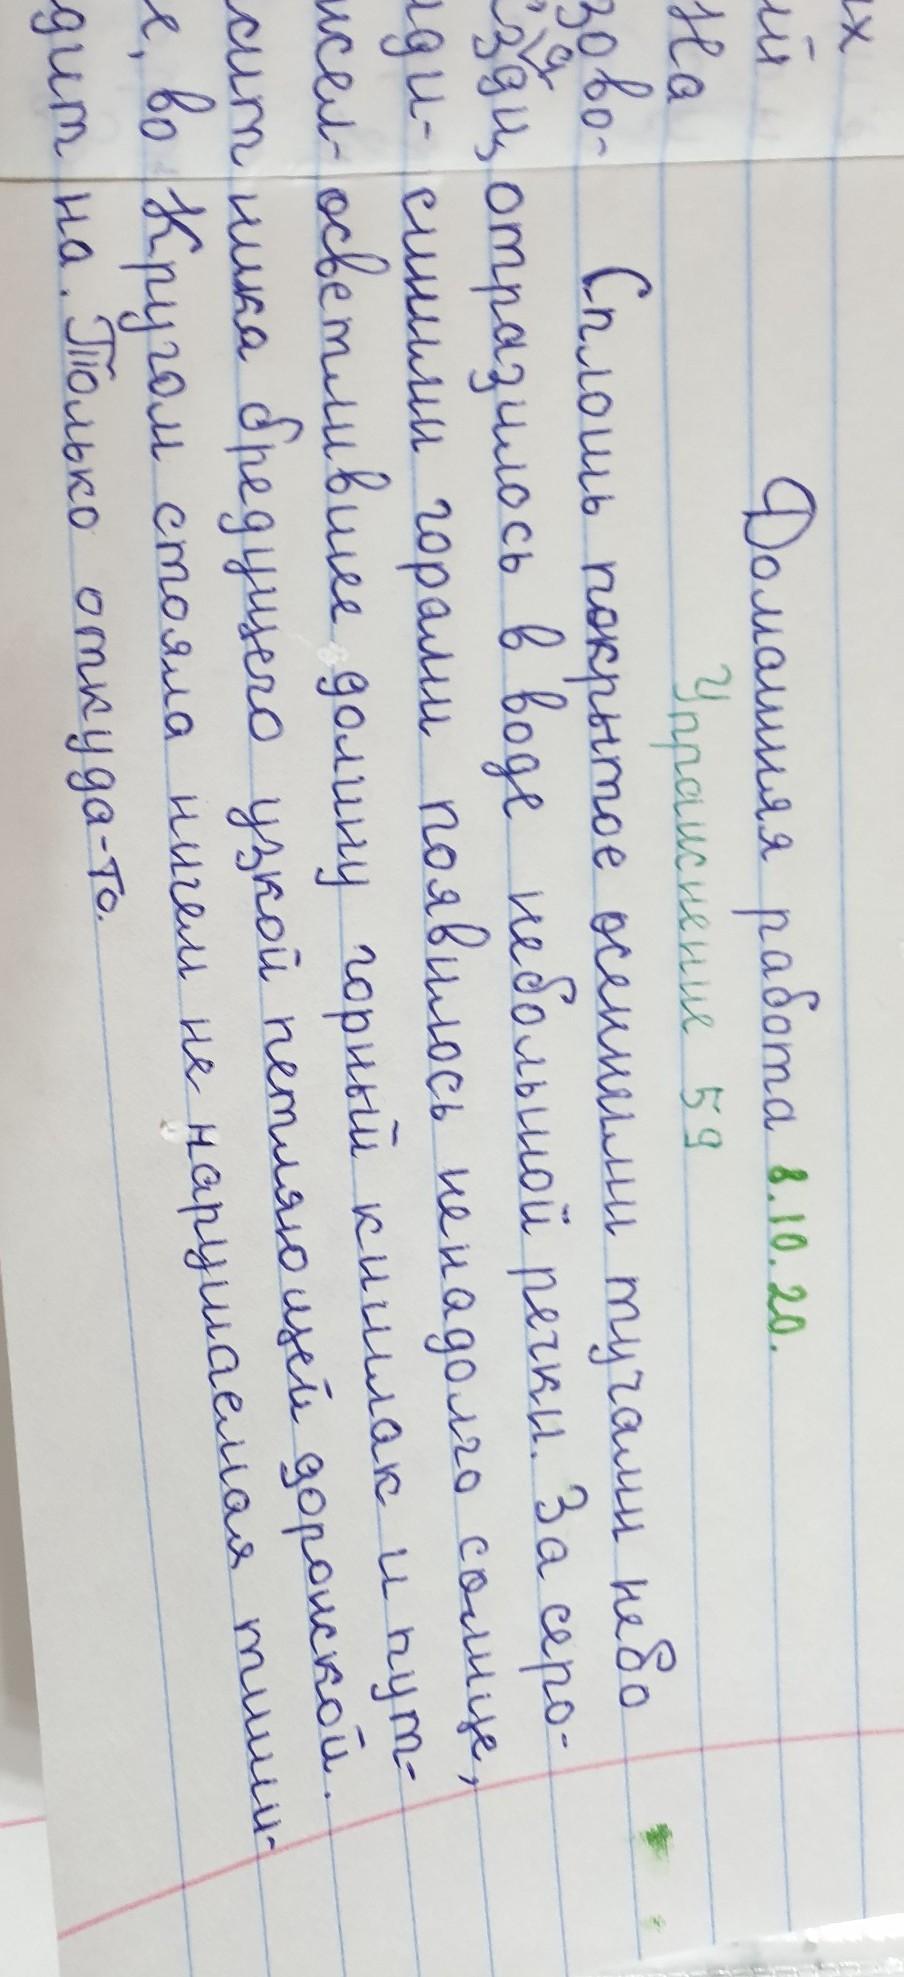 Домашняя работа 8.10.20.
Упражнение 59
Сплошь покрытое осенними тучами небо
отразилось в воде небольшой речки. За серо-
синими горами появилось ненадолго солнце,
осветлившее долину горный кишлак и пут-
ника бредущего узкой петляющей дорожкой.
Кругом стояла ничем не нарушаемая тиши-
на. Только откуда-то.
их
ий
На
зово-
езди
иди-
исел-
сит
е, во
дит